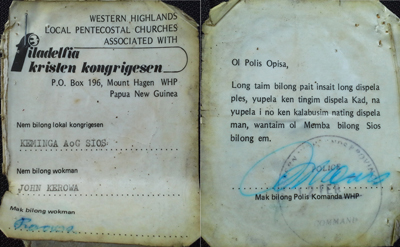 WESTERN HIGHLANDS
LOCAL PENTECOSTAL CHURCHES
ASSOCIATED WITH
filadelfia
kristen kongrigesen
P.O. Box 196, Mount Hagen WHP
Papua New Guinea
Nem bilong lokal kongrigesen
KEMINGA AoG SIOS
Nem bilong wokman
JOHN KEROWA
Mak bilong wokman
Ol Polis Opisa,
Long taim bilong pait insait long dispela
ples, yupela ken tingim dispela Kad, na
yupela i no ken kalabusim nating dispela
man, wantaim ol Memba bilong Sios
bilong em.
POLICE
Mak bilong Polis Komanda WHP